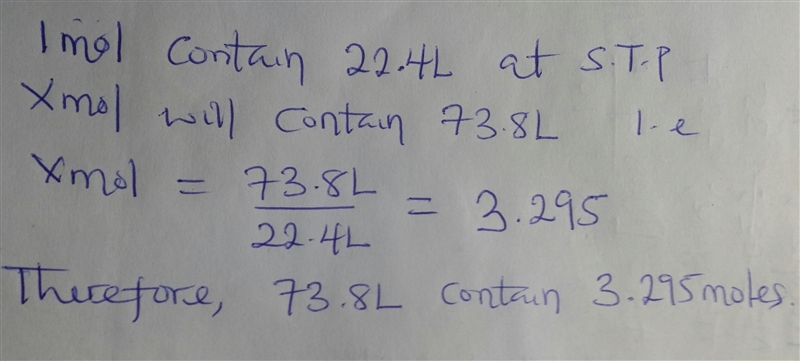 1mol contain 22.4L at S.T.P
Xmol will contain 73.8L 1.e
Xmol = 73.8L/22.4L = 3.295
Therefore, 73.8L contain 3.295moles.